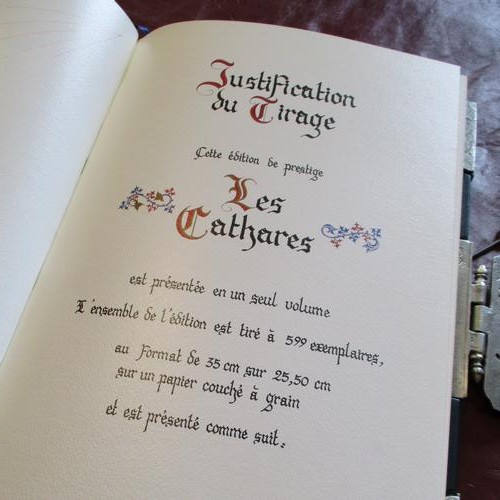 Justification
du Tirage
Cette édition de prestige
Les
Cathares
est présentée en un seul volume
L'ensemble de l'édition est tiré à 599 exemplaires,
au Format de 35 cm sur 25,50 cm
sur un papier couché à grain
et est présenté comme suit :